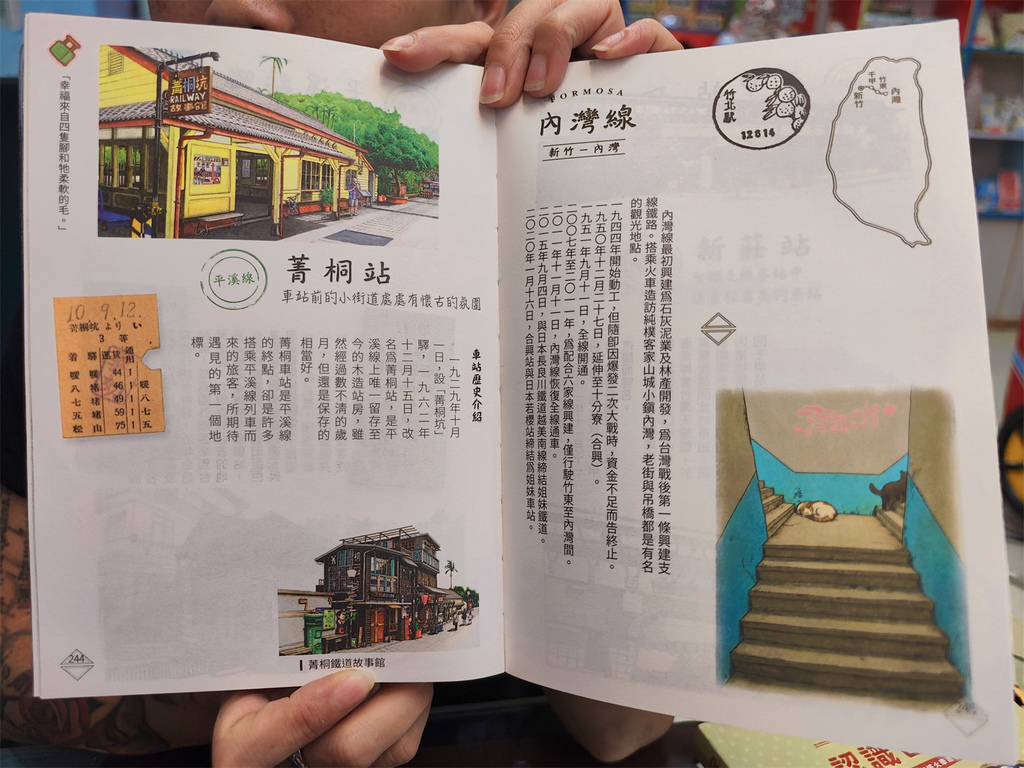 「幸福來自四隻腳和牠柔軟的毛。」
菁桐坑
RAILWAY
故事館
平溪線
菁桐站
車站前的小街道處處有懷古的氛圍
10.9.12.
菁桐坑 より い
3 等
着驛 運賃 通用
暖暖 44 1 暖
八堵 46 1 八
七堵 49 1 七
五堵 59 1 五
松山 75 1 五
車站歷史介紹
一九二九年十月
一日，設「菁桐坑」
驛，一九六二年
十二月十五日，改
名爲菁桐站，是平
溪線上唯一留存至
今的木造站房，雖
然經過數不清的歲
月，但還是保存的
相當好。
菁桐車站是平溪線
的終點，卻是許多
搭乘平溪線列車而
來的旅客，所期待
遇見的第一個地
標。
菁桐鐵道故事館
244
FORMOSA
內灣線
新竹－內灣
竹北驛
12 8 14
千甲
竹東
內灣
新竹
內灣線最初興建爲石灰泥業及林產開發，爲台灣戰後第一條興建支
線鐵路。搭乘火車造訪純樸客家山城小鎮內灣，老街與吊橋都是有名
的觀光地點。
一九四四年開始動工，但隨即因爆發二次大戰時，資金不足而告終止。
一九五〇年十二月二十七日，延伸至十分寮（合興）。
一九五一年九月十一日，全線開通。
二〇〇七年至二〇一一年，爲配合六家線興建，僅行駛竹東至內灣間。
二〇一一年十一月十一日，內灣線恢復全線通車。
二〇一五年九月四日，與日本長良川鐵道越美南線締結姐妹鐵道。
二〇二〇年一月十六日，合興站與日本若櫻站締結爲姐妹車站。
認識